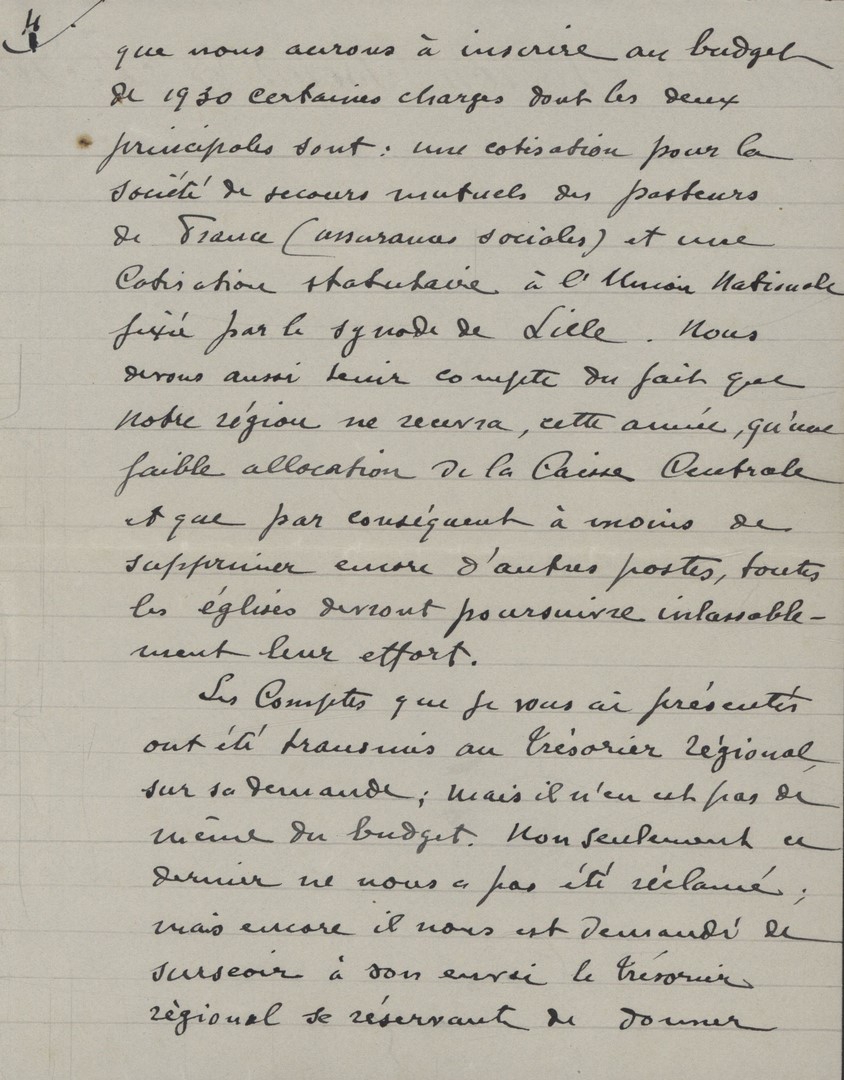 4
que nous aurons à inscrire au budget
de 1930 certaines charges dont les deux
principales sont : une cotisation pour la
Société de secours mutuels des pasteurs
de France (assurances sociales) et une
Cotisation statutaire à l'Union Nationale
fixée par le synode de Lille. Nous
devons aussi tenir compte du fait que
notre région ne recevra, cette année, qu'une
faible allocation de la Caisse Centrale
et que par conséquent à moins de
supprimer encore d'autres postes, toutes
les églises devront poursuivre inlassable-
ment leur effort.
Les Comptes que je vous ai présentés
ont été transmis au Trésorier régional,
sur sa demande ; mais il n'en est pas de
même du budget. Non seulement ce
dernier ne nous a pas été réclamé ;
mais encore il nous est demandé de
surseoir à son envoi le Trésorier
régional se réservant de donner